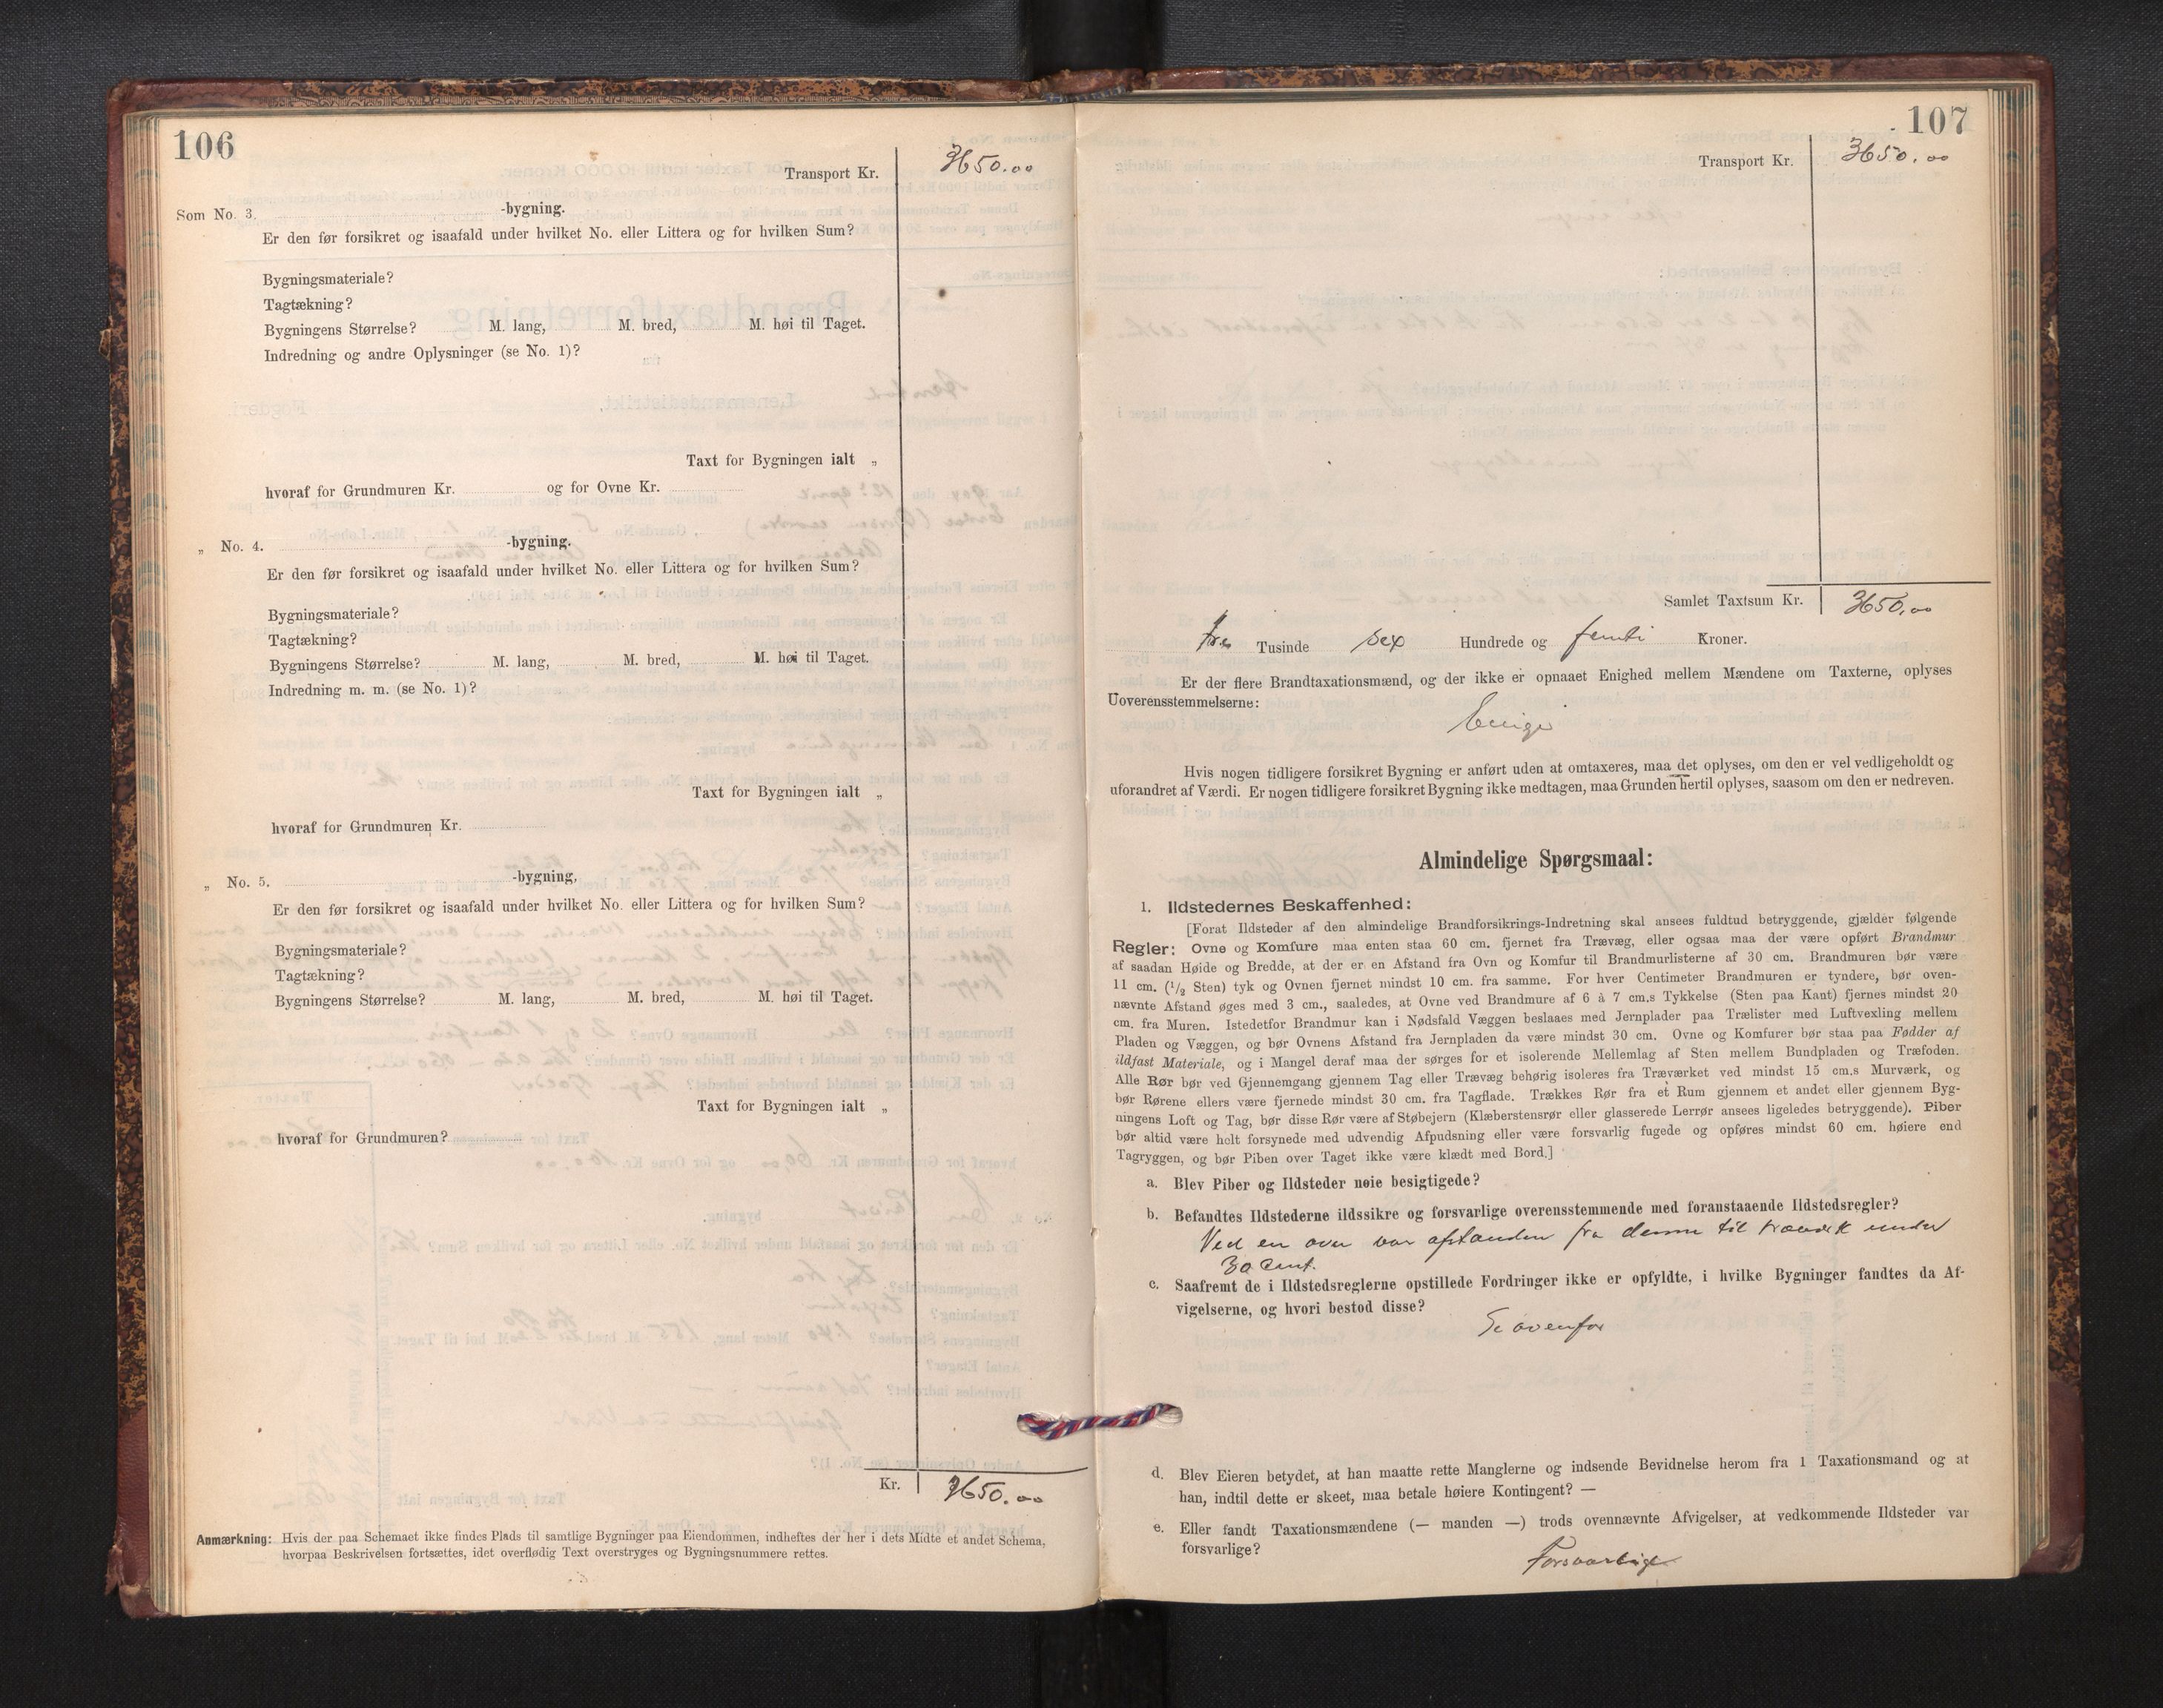 106
Transport Kr. 3650.00
Som No. 3. -bygning.
Er den før forsikret og isaafald under hvilket No. eller Littera og for hvilken Sum?
Bygningsmateriale?
Tagtækning?
Bygningens Størrelse? M. lang, M. bred, M. høi til Taget.
Indredning og andre Oplysninger (se No. 1)?
Taxt for Bygningen ialt „
hvoraf for Grundmuren Kr. og for Ovne Kr.
„ No. 4. -bygning.
Er den før forsikret og isaafald under hvilket No. eller Littera og for hvilken Sum?
Bygningsmateriale?
Tagtækning?
Bygningens Størrelse? M. lang, M. bred, M. høi til Taget.
Indredning m. m. (se No. 1)?
Taxt for Bygningen ialt „
hvoraf for Grundmuren Kr.
„ No. 5. -bygning,
Er den før forsikret og isaafald under hvilket No. eller Littera og for hvilken Sum?
Bygningsmateriale?
Tagtækning?
Bygningens Størrelse? M. lang, M. bred, M. høi til Taget.
Taxt for Bygningen ialt „
hvoraf for Grundmuren?
Kr. 3650.00
Anmærkning: Hvis der paa Schemaet ikke findes Plads til samtlige Bygninger paa Eiendommen, indheftes der her i dets Midte et andet Schema,
hvorpaa Beskrivelsen fortsættes, idet overflødig Text overstryges og Bygningsnummere rettes.
107
Transport Kr. 3650.00
Samlet Taxtsum Kr. 3650.00
Tre Tusinde sex Hundrede og femti Kroner.
Er der flere Brandtaxationsmænd, og der ikke er opnaaet Enighed mellem Mændene om Taxterne, oplyses
Uoverensstemmelserne:
Enige
Hvis nogen tidligere forsikret Bygning er anført uden at omtaxeres, maa det oplyses, om den er vel vedligeholdt og
uforandret af Værdi. Er nogen tidligere forsikret Bygning ikke medtagen, maa Grunden hertil oplyses, saasom om den er nedreven.
Almindelige Spørgsmaal:
1. Ildstedernes Beskaffenhed:
[Forat Ildsteder af den almindelige Brandforsikrings-Indretning skal ansees fuldtud betryggende, gjælder følgende
Regler: Ovne og Komfure maa enten staa 60 cm. fjernet fra Trævæg, eller ogsaa maa der være opført Brandmur
af saadan Høide og Bredde, at der er en Afstand fra Ovn og Komfur til Brandmurlisterne af 30 cm. Brandmuren bør være
11 cm. (1/2 Sten) tyk og Ovnen fjernet mindst 10 cm. fra samme. For hver Centimeter Brandmuren er tyndere, bør oven-
nævnte Afstand øges med 3 cm., saaledes, at Ovne ved Brandmure af 6 à 7 cm.s Tykkelse (Sten paa Kant) fjernes mindst 20
cm. fra Muren. Istedetfor Brandmur kan i Nødsfald Væggen beslaaes med Jernplader paa Trælister med Luftvexling mellem
Pladen og Væggen, og bør Ovnens Afstand fra Jernpladen da være mindst 30 cm. Ovne og Komfurer bør staa paa Fødder af
ildfast Materiale, og i Mangel deraf maa der sørges for et isolerende Mellemlag af Sten mellem Bundpladen og Træfoden.
Alle Rør bør ved Gjennemgang gjennem Tag eller Trævæg behørig isoleres fra Træværket ved mindst 15 cm.s Murværk, og
bør Rørene ellers være fjernede mindst 30 cm. fra Tagflade. Trækkes Rør fra et Rum gjennem et andet eller gjennem Byg-
ningens Loft og Tag, bør disse Rør være af Støbejern (Klæberstensrør eller glasserede Lerrør ansees ligeledes betryggende). Piber
bør altid være helt forsynede med udvendig Afpudsning eller være forsvarlig fugede og opføres mindst 60 cm. høiere end
Tagryggen, og bør Piben over Taget ikke være klædt med Bord.]
a. Blev Piber og Ildsteder nøie besigtigede?
b. Befandtes Ildstederne ildssikre og forsvarlige overensstemmende med foranstaaende Ildstedsregler?
Ved en ovn var afstanden fra denne til træværk under
30 Cent.
c. Saafremt de i Ildstedsreglerne opstillede Fordringer ikke er opfyldte, i hvilke Bygninger fandtes da Af-
vigelserne, og hvori bestod disse?
Se ovenfor
d. Blev Eieren betydet, at han maatte rette Manglerne og indsende Bevidnelse herom fra 1 Taxationsmand og at
han, indtil dette er skeet, maa betale høiere Kontingent? —
e. Eller fandt Taxationsmændene (— manden —) trods ovennævnte Afvigelser, at vedkommende Ildsteder var
forsvarlige?
Forsvarlige